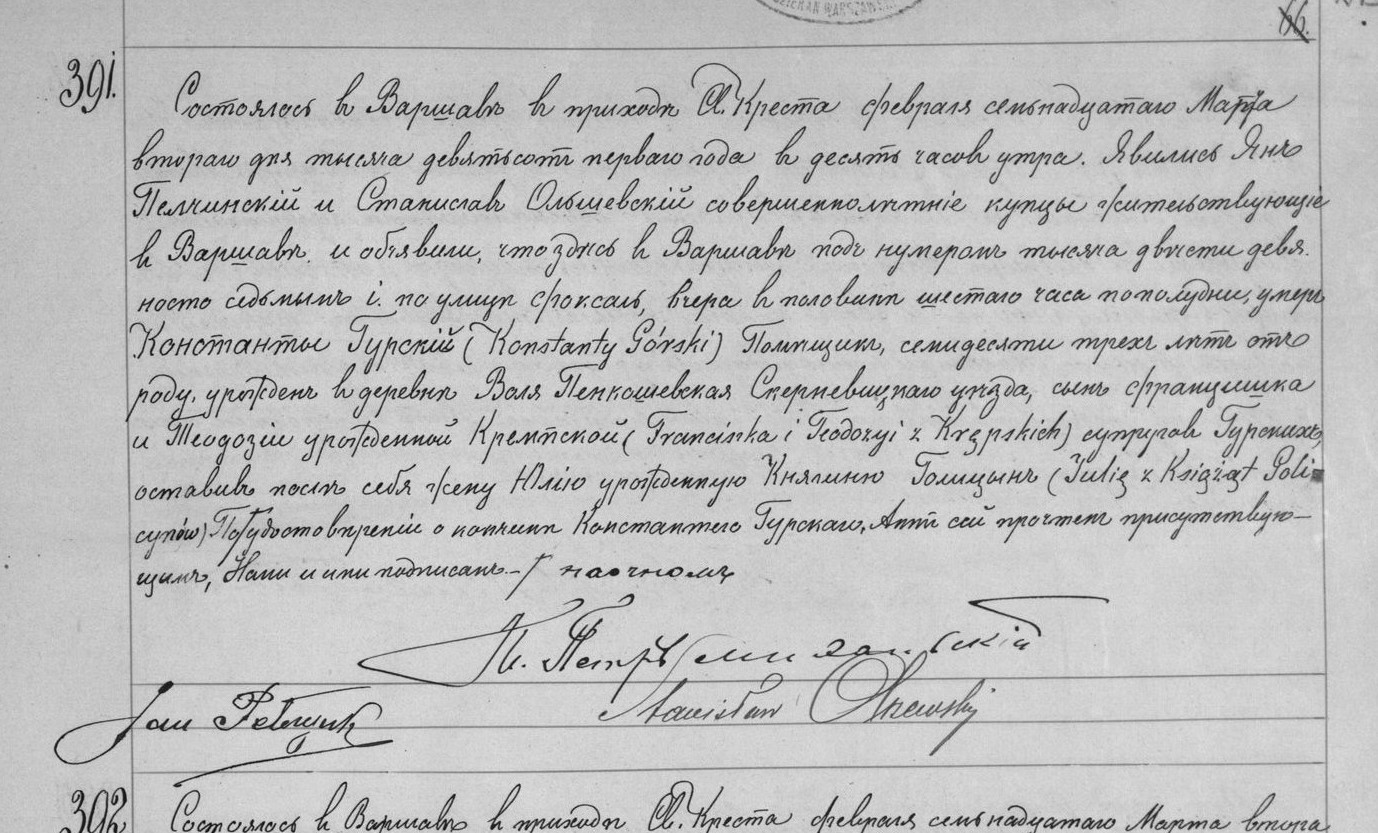 DZIEKAN WARSZAWSKI
66.
391. Состоялось въ Варшавѣ въ приходѣ Св. Креста февраля семьнадцатаго Марта
втораго дня тысяча девятьсотъ перваго года въ десять часовъ утра. Явились Янъ
Пелчинскій и Станиславъ Ольшевскій совершеннолѣтніе купцы жительствующіе
въ Варшавѣ и объявили, что здѣсь въ Варшавѣ подъ нумеромъ тысяча двѣсти девя-
носто седьмымъ i. по улицѣ Фоксаль, вчера въ половинѣ шестаго часа по полудни, умеръ
Константы Гурскій (Konstanty Górski) Помѣщикъ, семидесяти трехъ лѣтъ отъ
роду, урожденъ въ деревнѣ Воля Пенкошевская Скерневицкаго уѣзда, сынъ Францишка
и Теодозіи урожденной Кремпской (Franciszka i Teodozyi z Krępskich) супруговъ Гурскихъ,
оставивъ послѣ себя жену Юлію урожденную Княгиню Голицынъ (Julię z Książąt Goli-
cynów) По/ удостовѣреніи о кончинѣ Константего Гурскаго, Актъ сей прочтенъ присутствую-
щимъ, Нами и ими подписанъ. –/ наочномъ
Jan Pełczyński Stanisław Olszewski
392 Состоялось въ Варшавѣ въ приходѣ Св. Креста февраля семьнадцатаго Марта втора